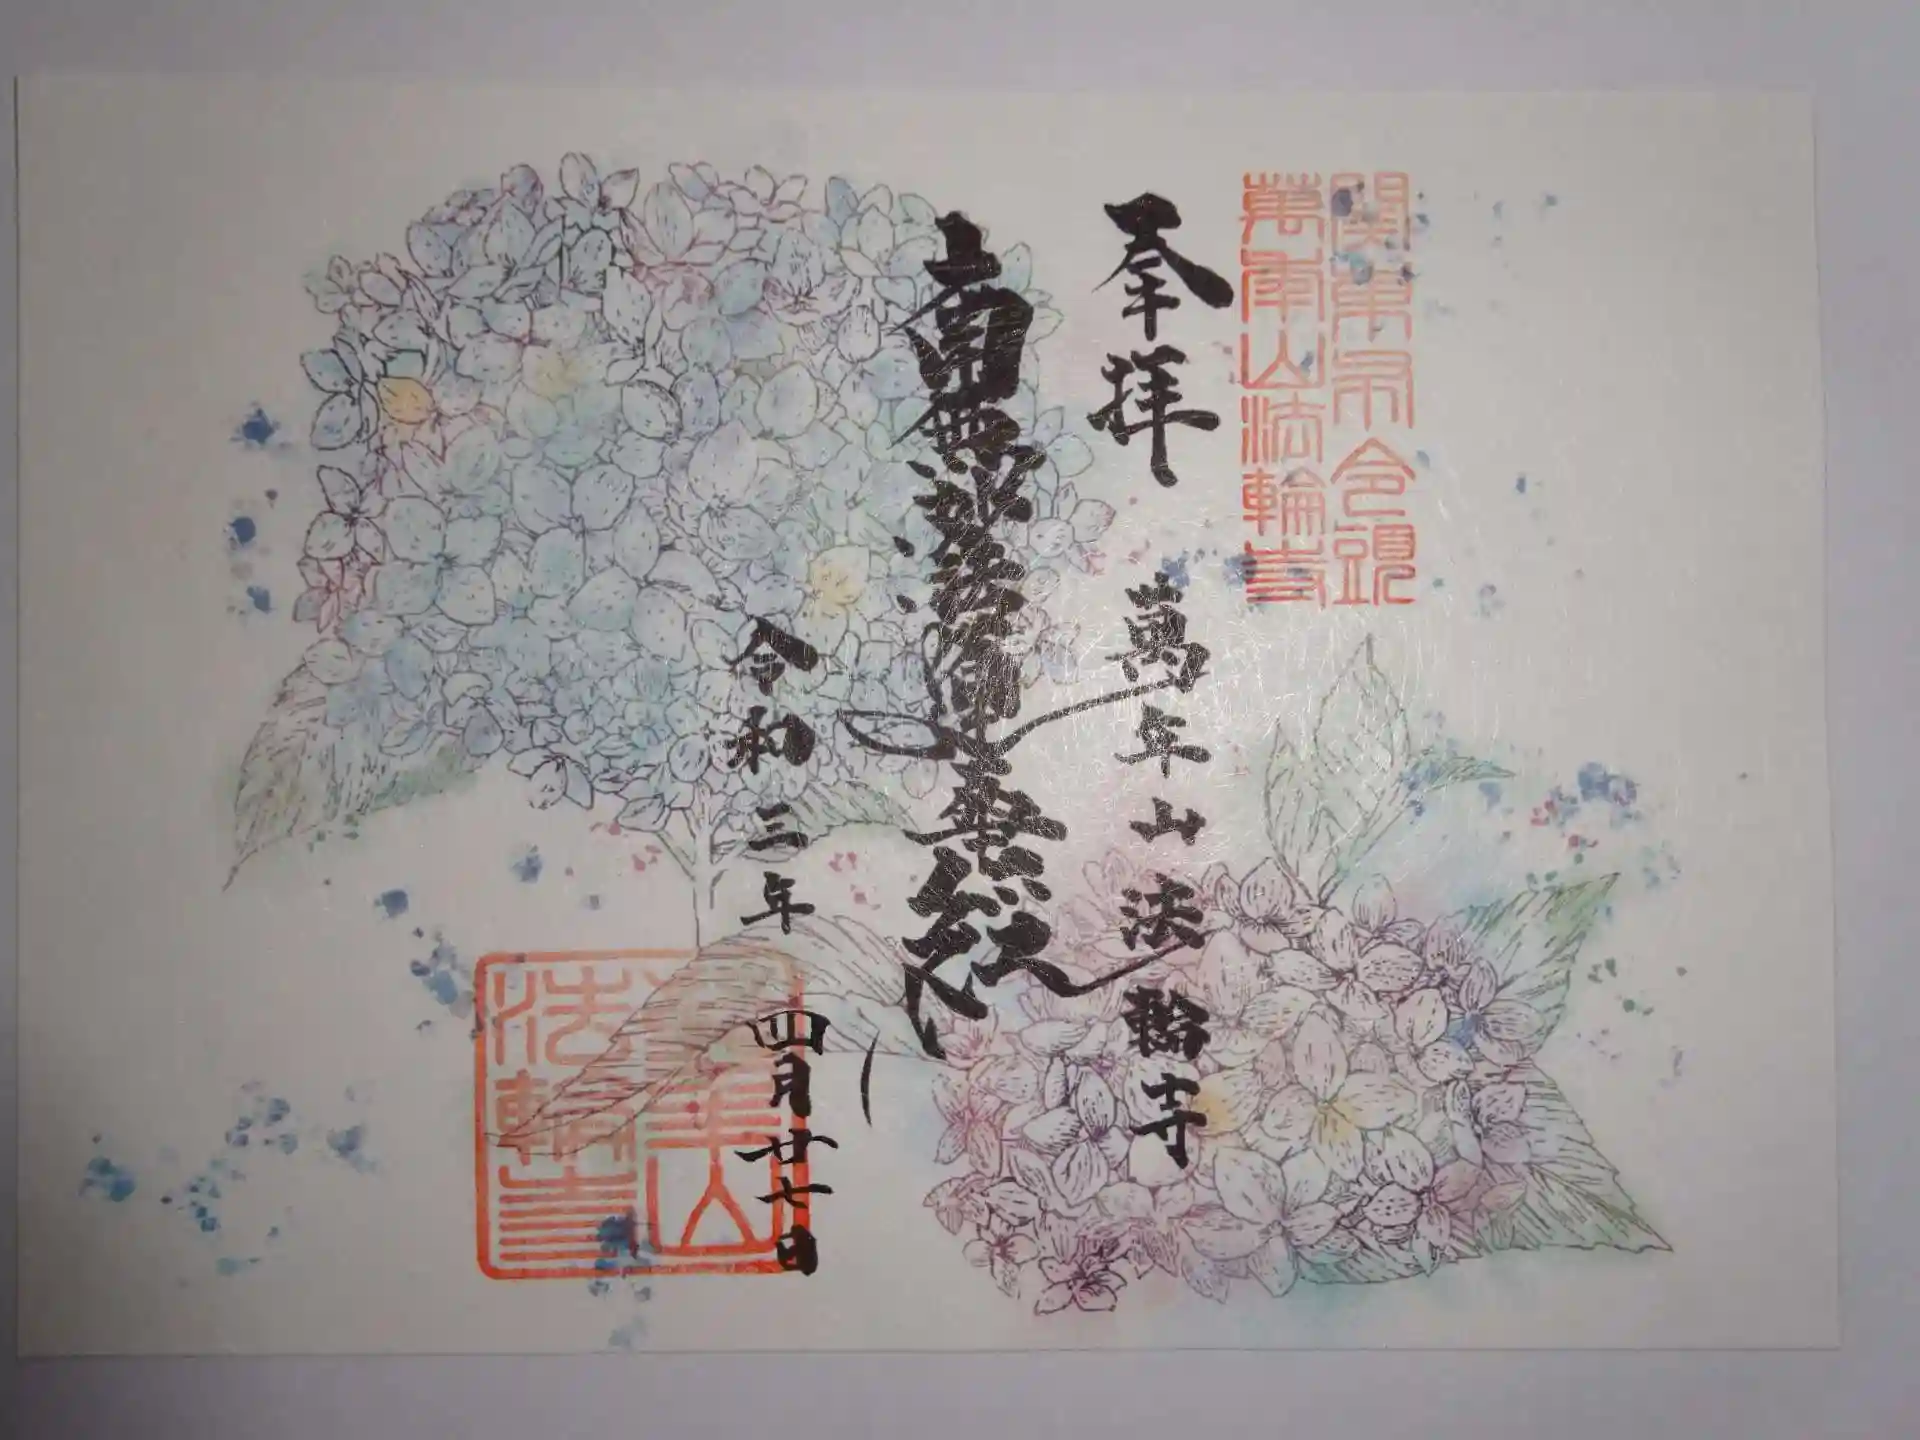 関東布令頭
萬年山法輪寺
奉拝
萬年山法輪寺
南無妙法蓮華経
令和三年
四月廿七日
萬年山
法輪寺